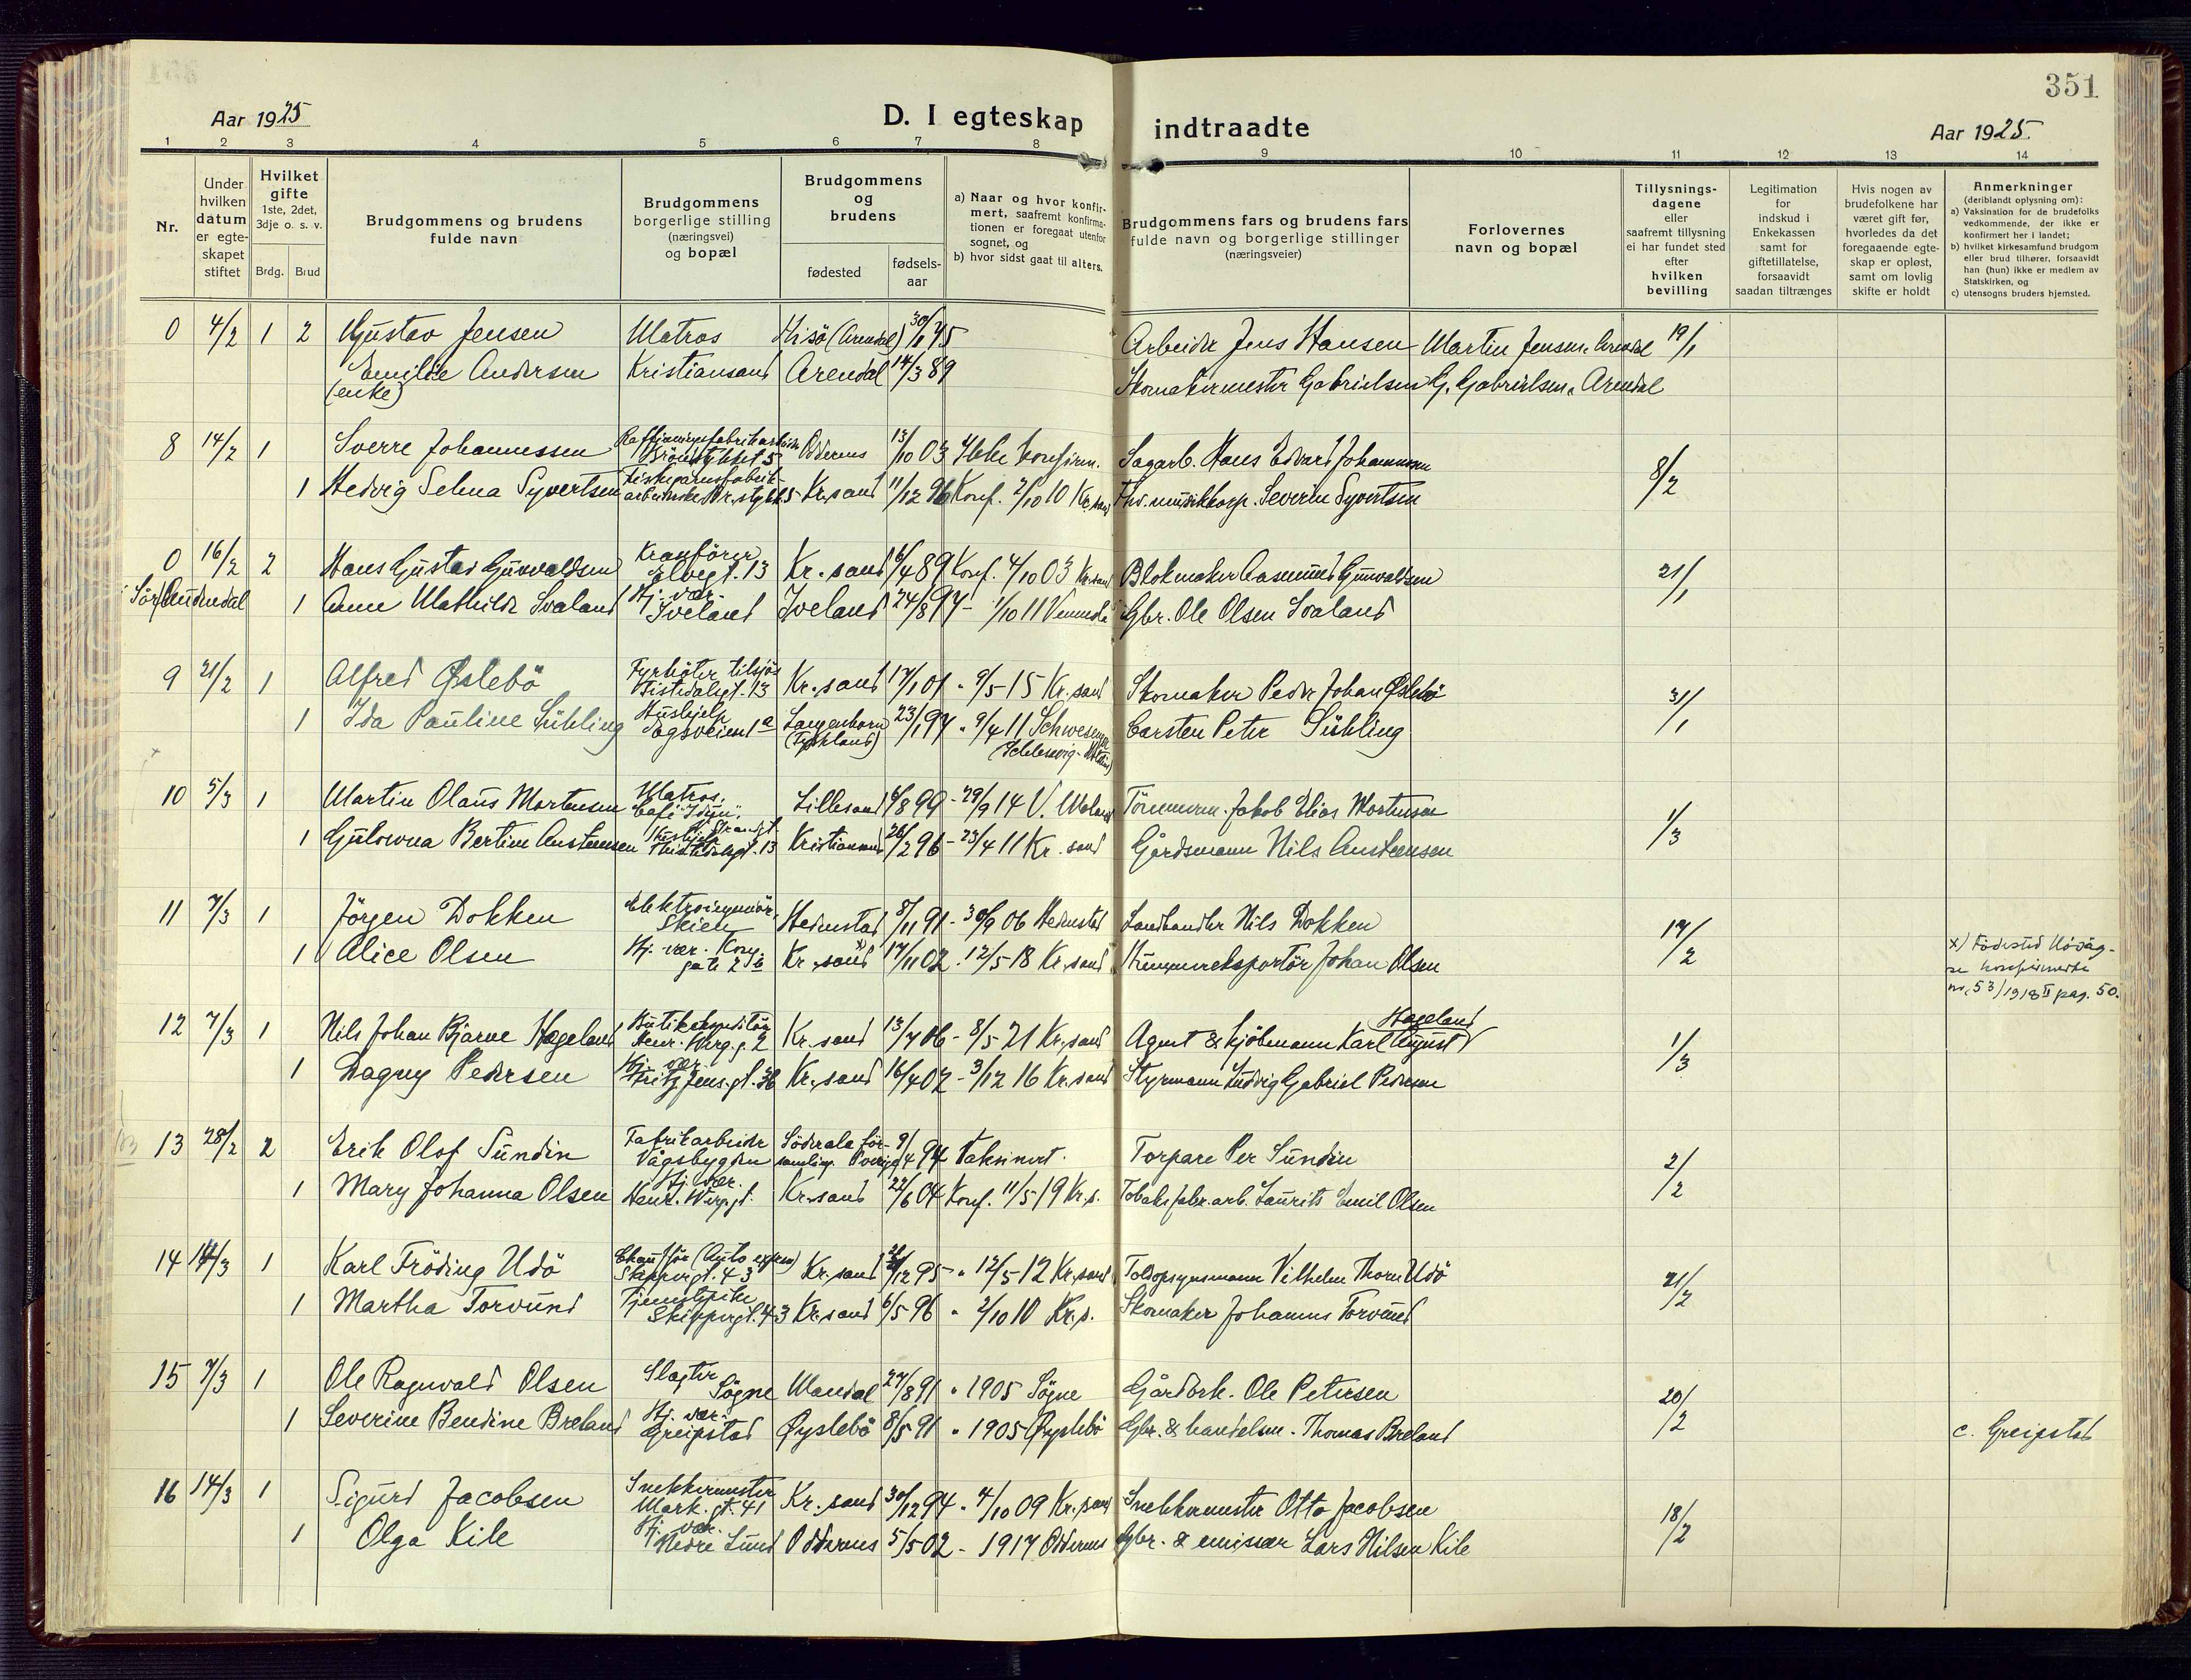 351
Aar 1925
D. I egteskap indtraadte
Aar 1925.
1 2 3 4 5 6 7 8 9 10 11 12 13 14
Nr.
Under hvilken datum er egteskapet stiftet
Hvilket gifte
1ste, 2det, 3dje o. s. v.
Brdg. Brud
Brudgommens og brudens fulde navn
Brudgommens borgerlige stilling (næringsvei) og bopæl
Brudgommens og brudens
fødested
fødsels-aar
a) Naar og hvor konfirmert, saafremt konfirmationen er foregaat utenfor sognet, og
b) hvor sidst gaat til alters.
Brudgommens fars og brudens fars fulde navn og borgerlige stillinger (næringsveier)
Forlovernes navn og bopæl
Tillysningsdagene eller saafremt tillysning ei har fundet sted efter hvilken bevilling
Legitimation for indskud i Enkekassen samt for giftetillatelse, forsaavidt saadan tiltrænges
Hvis nogen av brudefolkene har været gift før, hvorledes da det foregaaende egteskap er opløst, samt om lovlig skifte er holdt
Anmerkninger
(deriblandt oplysning om):
a) Vaksination for de brudefolks vedkommende, der ikke er konfirmert her i landet;
b) hvilket kirkesamfund brudgom eller brud tilhører, forsaavidt han (hun) ikke er medlem av Statskirken, og
c) utensogns bruders hjemsted.
0 4/2 1 2 Gustav Jensen Matros Hisö (Arendal) Arbeider Jens Hansen Martin Jensen, Arendal 19/1
Emilie Andersen Kristiansand Arendal 14/3 89 Skomakermester Gabrielsen G. Gabrielsen, Arendal
(enke)
8 14/2 1 Sverre Johannessen Oddernes 13/10 03 Ikke konfirm. Sagarb. Hans Edvard Johannessen 8/2
1 Hedvig Selma Syvertsen Kr.sand 11/12 96 Konf. 2/10 10 Kr.sand Severin Syvertsen
0 16/2 2 Hans Gustav Gunvaldsen Kranförer Elvegt. 13 Kr.sand 6/4 89 Konf. 4/10 03 Kr.sand Blokmaker Aasmund Gunvaldsen 21/1
Sör Audnedal 1 Anne Mathilde Svaland Hj. vær. Iveland Iveland 24/8 97 - 1/10 11 Vennesla Gbr. Ole Olsen Svaland
9 21/2 1 Alfred Øslebö Fyrböter tilsjös Tistedalsgt. 13 Kr.sand 17/1 01 " 9/5 15 Kr.sand Skomaker Peder Johan Øslebö 31/1
1 Ida Pauline Sühling Hushjelp Egsveien 1a Langenhorn (Tyskland) 23/1 97 " 9/4 11 Schwesing (Schlesvig-Holstein) Carsten Peter Sühling
10 5/3 1 Martin Olaus Mortensen Matros. Café "Idun", Strandgt. Lillesand 4/8 99 - 29/9 14 V. Moland Tömmerm. Jakob Elias Mortensen 1/3
1 Gulowna Bertine Austeensen Hushjelp Thistedalsgt. 13 Kristiansand 26/2 96 - 23/4 11 Kr.sand Gårdsmann Nils Austeensen
11 7/3 1 Jörgen Dokken Elektroingeniör, Skien Hedenstad 8/11 91 - 30/9 06 Hedenstad Landhandler Nils Dokken 14/2
1 Alice Olsen Hj. vær. Kongsgate 2 b Kr.sand x) 17/11 02 - 12/5 18 Kr.sand Hummereksportör Johan Olsen
x) Födested Hövåg - se konfirmerte nr. 53/1918 II pag. 50.
12 7/3 1 Nils Johan Bjarne Hageland Butikekspeditör Henr. Werg.g. 2 Kr.sand 13/7 06 - 8/5 21 Kr.sand Agent & kjöbmann Karl August Hageland 1/3
1 Dagny Pedersen Hj. vær. Fritz Jens.gt. 36 Kr.sand 16/4 02 - 3/12 16 Kr.sand Styrmann Ludvig Gabriel Pedersen
13 28/2 2 Erik Olof Sundin Fabrikarbeider Vågsbygden Söderala församling. Sverige 9/4 94 Vaksinert. Torpare Per Sundin 2/2
1 Mary Johanna Olsen Hj. vær. Henr. Werg.gt. Kr.sand 22/6 04 Konf. 11/5 19 Kr.s. Tobaksfabr.arb. Laurits Emil Olsen
14 14/3 1 Karl Fröding Udö Chaufför (Auto express) Skippergt. 43 Kr.sand /12 95 " 12/5 12 Kr.sand Toldopsynsmann Vilhelm Thom Udö 21/2
1 Martha Torvund Tjenestepike Skippergt. 43 Kr.sand 6/5 96 " 2/10 10 Kr.s. Skomaker Johannes Torvund
15 7/3 1 Ole Ragnvald Olsen Slagter Sögne Mandal 27/8 91 " 1905 Sögne Gårdbrk. Ole Petersen 20/2
1 Severine Bendine Breland Hj. vær. Greipstad Øyslebö 8/5 91 " 1905 Øyslebö Gbr. & handelsm. Thomas Breland c. Greipstad
16 14/3 1 Sigurd Jacobsen Snekkermester Mark.gt. 41 Kr.sand 30/12 94 " 4/10 09 Kr.sand Snekkermester Otto Jacobsen 18/2
1 Olga Kile Hj. vær. Nedre Lund Oddernes 5/5 02 - 1917 Oddernes Gbr. & emissær Lars Nilsen Kile